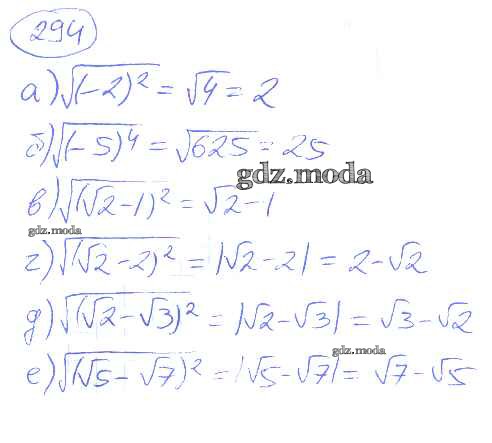 294
а) √(-2)² = √4 = 2
б) √(-5)⁴ = √625 = 25
gdz.moda
в) √(√2-1)² = √2-1
gdz.moda
г) √(√2-2)² = |√2-2| = 2-√2
д) √(√2-√3)² = |√2-√3| = √3-√2
gdz.moda
е) √(√5-√7)² = |√5-√7| = √7-√5